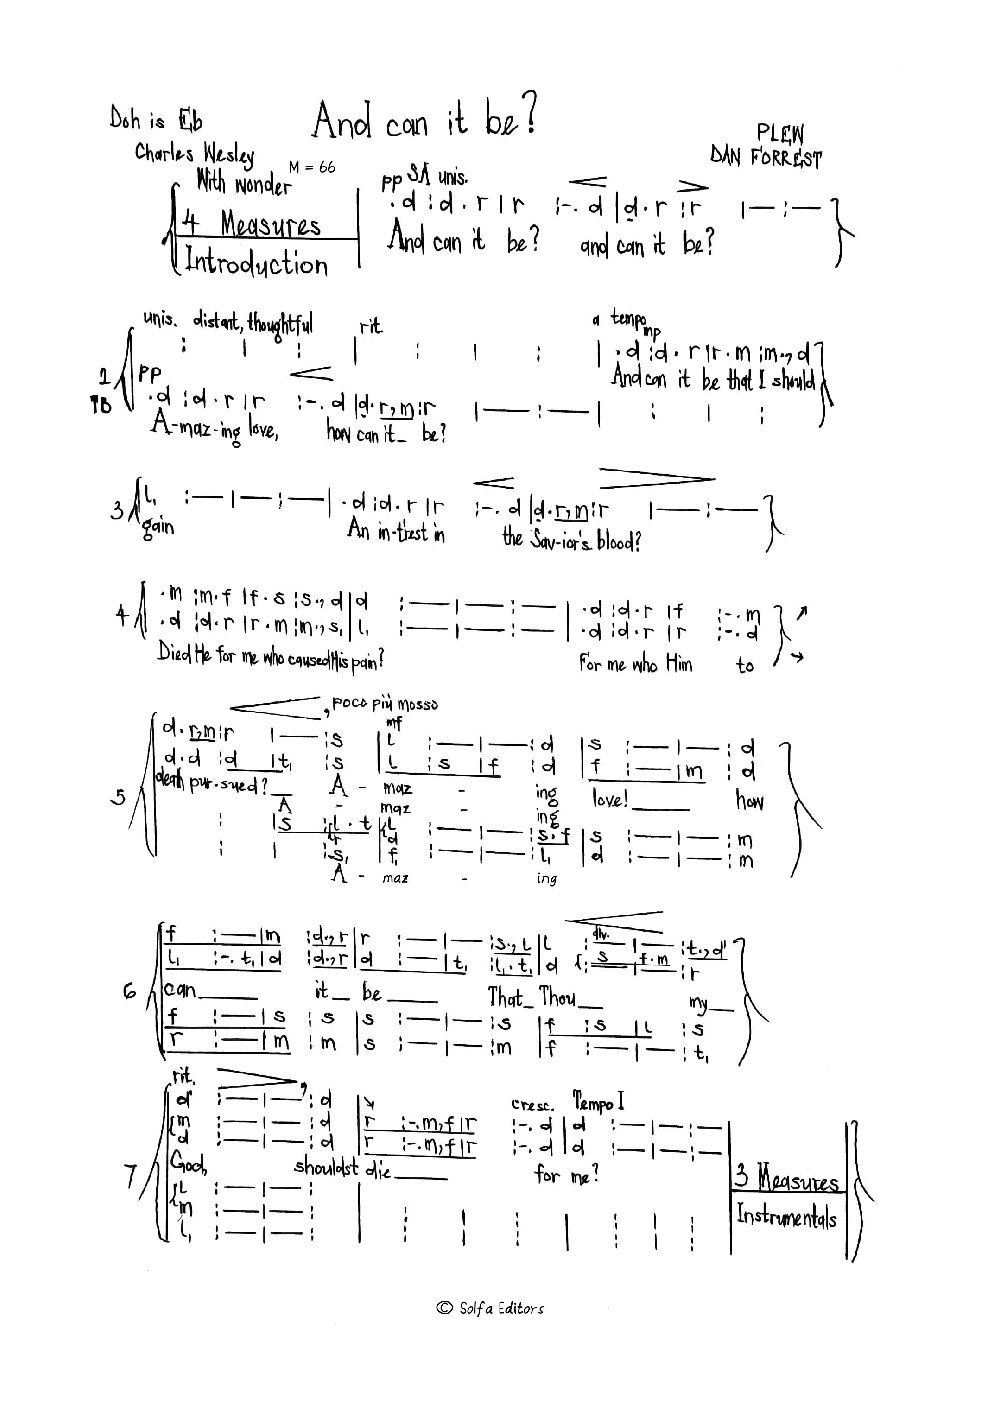 Doh is Eb
And can it be?
PLEW
Charles Wesley
DAN FORREST
M = 66
With wonder
pp SA unis.
4 Measures
. d : d . r | r :-. d | d . r : r | — : —
And can it be? and can it be?
Introduction
unis. distant, thoughtful rit. a tempo
mp
: | : | : | : | . d : d . r | r . m : m ., d
2 pp
And can it be that I should
TB . d : d . r | r :-. d | d . r, m : r | — : — | : | :
A-maz-ing love, how can it_ be?
3 l₁ : — | — : — | . d : d . r | r :-. d | d . r, m : r | — : —
gain An in-t'rest in the Sav-ior's blood?
. m : m . f | f . s : s ., d | d : — | — : — | . d : d . r | f :-. m
4 . d : d . r | r . m : m ., s₁ | l₁ : — | — : — | . d : d . r | r :-. d
Died He for me who caused His pain? For me who Him to
, poco più mosso
mf
d . r, m : r | — : s | l : — | — : d | s : — | — : d
d . d : d | t₁ : s | l : s | f : d | f : — | m : d
death pur-sued?__ A - maz - ing love!____ how
5 A - maz - ing
: | s : l . t | l : — | — : s . f | s : — | — : m
: | : s₁ | f₁ : — | — : l₁ | d : — | — : m
A - maz - ing
div.
f : — | m : d ., r | r : — | — : s ., l | l : — | — : t ., d'
l₁ :-. t₁ | d : d ., r | d : — | t₁ : l₁ . t₁ | d : s | f . m : r
6 can____ it_ be____ That_Thou__ my__
f : — | s : s | s : — | — : s | f : s | l : s
r : — | m : m | s : — | — : m | f : — | — : t₁
rit. , cresc. Tempo I
d' : — | — : d
m : — | — : d | r :-. m, f | r :-. d | d : — | — : —
d : — | — : d | r :-. m, f | r :-. d | d : — | — : —
7 God, shouldst die____ for me?
3 Measures
l : — | — :
m : — | — : | : | : | : | :
Instrumentals
l₁ : — | — :
© Solfa Editors